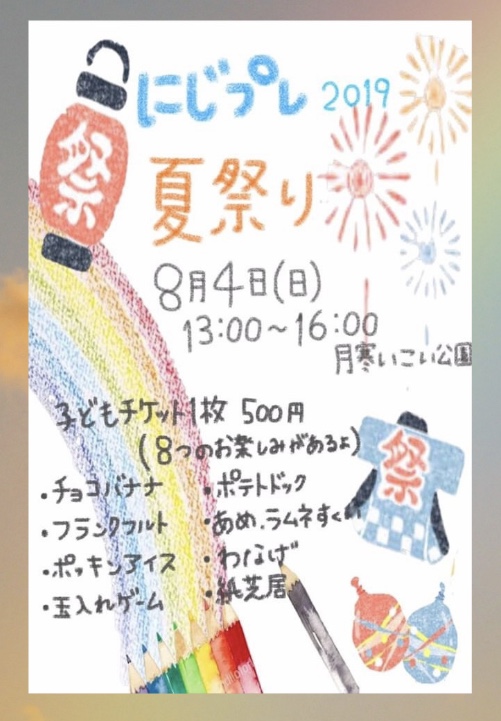 祭
にじプレ 2019
夏祭り
8月4日(日)
13:00~16:00
月寒いこい公園
子どもチケット1枚 500円
(8つのお楽しみがあるよ)
・チョコバナナ
・フランクフルト
・ポッキンアイス
・玉入れゲーム
・ポテトドック
・あめ、ラムネすくい
・わなげ
・紙芝居
祭